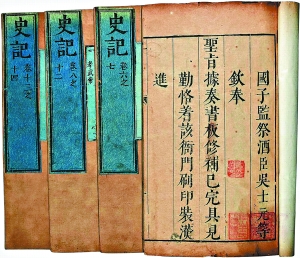 國子監祭酒臣吳士元等
欽奉
聖旨據奏書板修補已完具見
勤恪著該衙門刷印裝潢
進
史記
卷六之
七
史記
卷八之
十二
史記